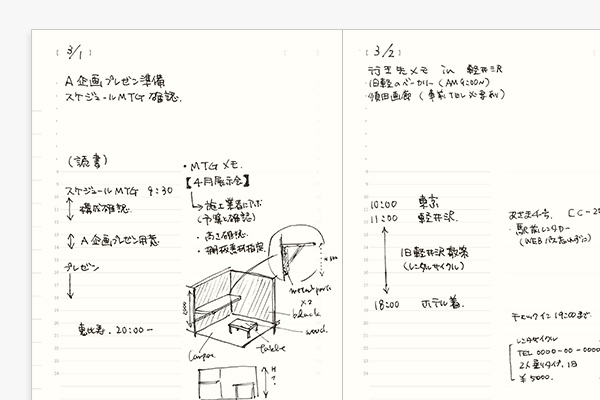 3/1
A企画プレゼン準備
スケジュールMTG確認.
(読書)
スケジュールMTG 9:30
構成確認.
A企画プレゼン用意
プレゼン
恵比寿. 20:00ー
・MTGメモ.
【4月展示会】
施工業者にアポ
(予算も確認)
・高さ確認.
・棚板素材指定.
metal parts
×2
black
wood
table
carpet
H
?
3/2
行き先メモ in 軽井沢
旧軽のベーカリー (AM9:00〜)
脇田画廊 (事前TEL必要あり)
10:00 東京
11:00 軽井沢.
旧軽井沢散策
(レンタルサイクル)
18:00 ホテル着.
あさま4号. CC-2
・駅前レンタカー
チェックイン19:00まで.
レンタサイクル
TEL 0000-00-0000
2人乗りタイプ. 1日
¥5000.